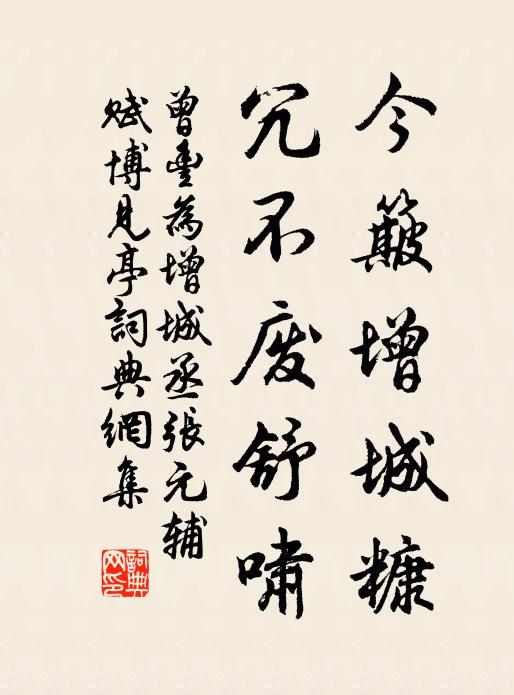 今簸增城糠
冗不废舒啸
曾豊為增城丞張元辅
赋博見亭詞典網集
詞典网印